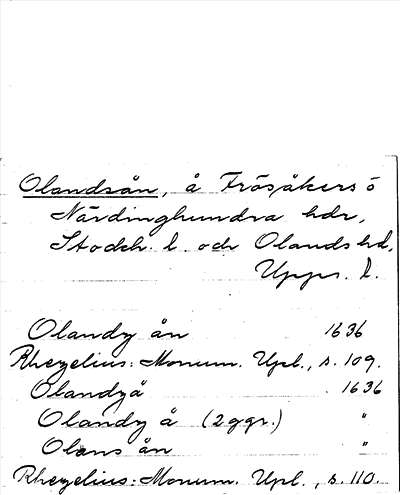 Olandsån, å Frösåkers o
Närdinghundra hdr,
Stockh. l. och Olands hd,
Upps. l.
Olandz ån 1636
Rhezelius: Monum. Upl., s. 109.
Olandzå 1636
Olandz å (2 ggr.) "
Olans ån "
Rhezelius: Monum. Upl., s. 110.